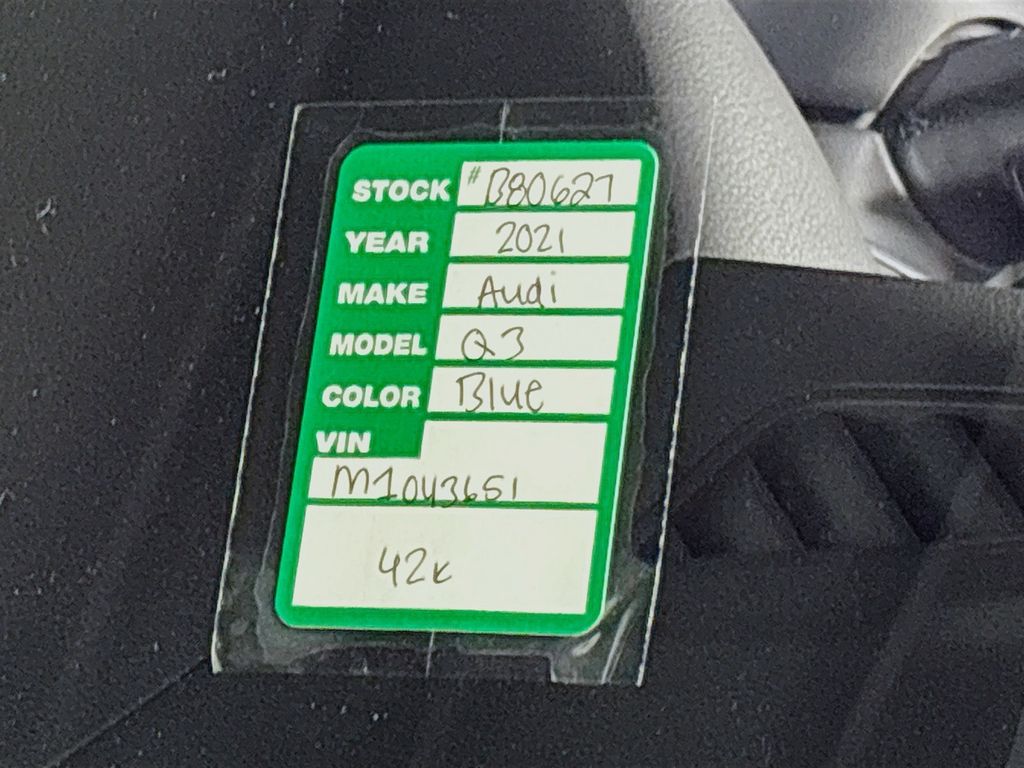 STOCK # B80627
YEAR 2021
MAKE Audi
MODEL Q3
COLOR Blue
VIN
M1043651
42k